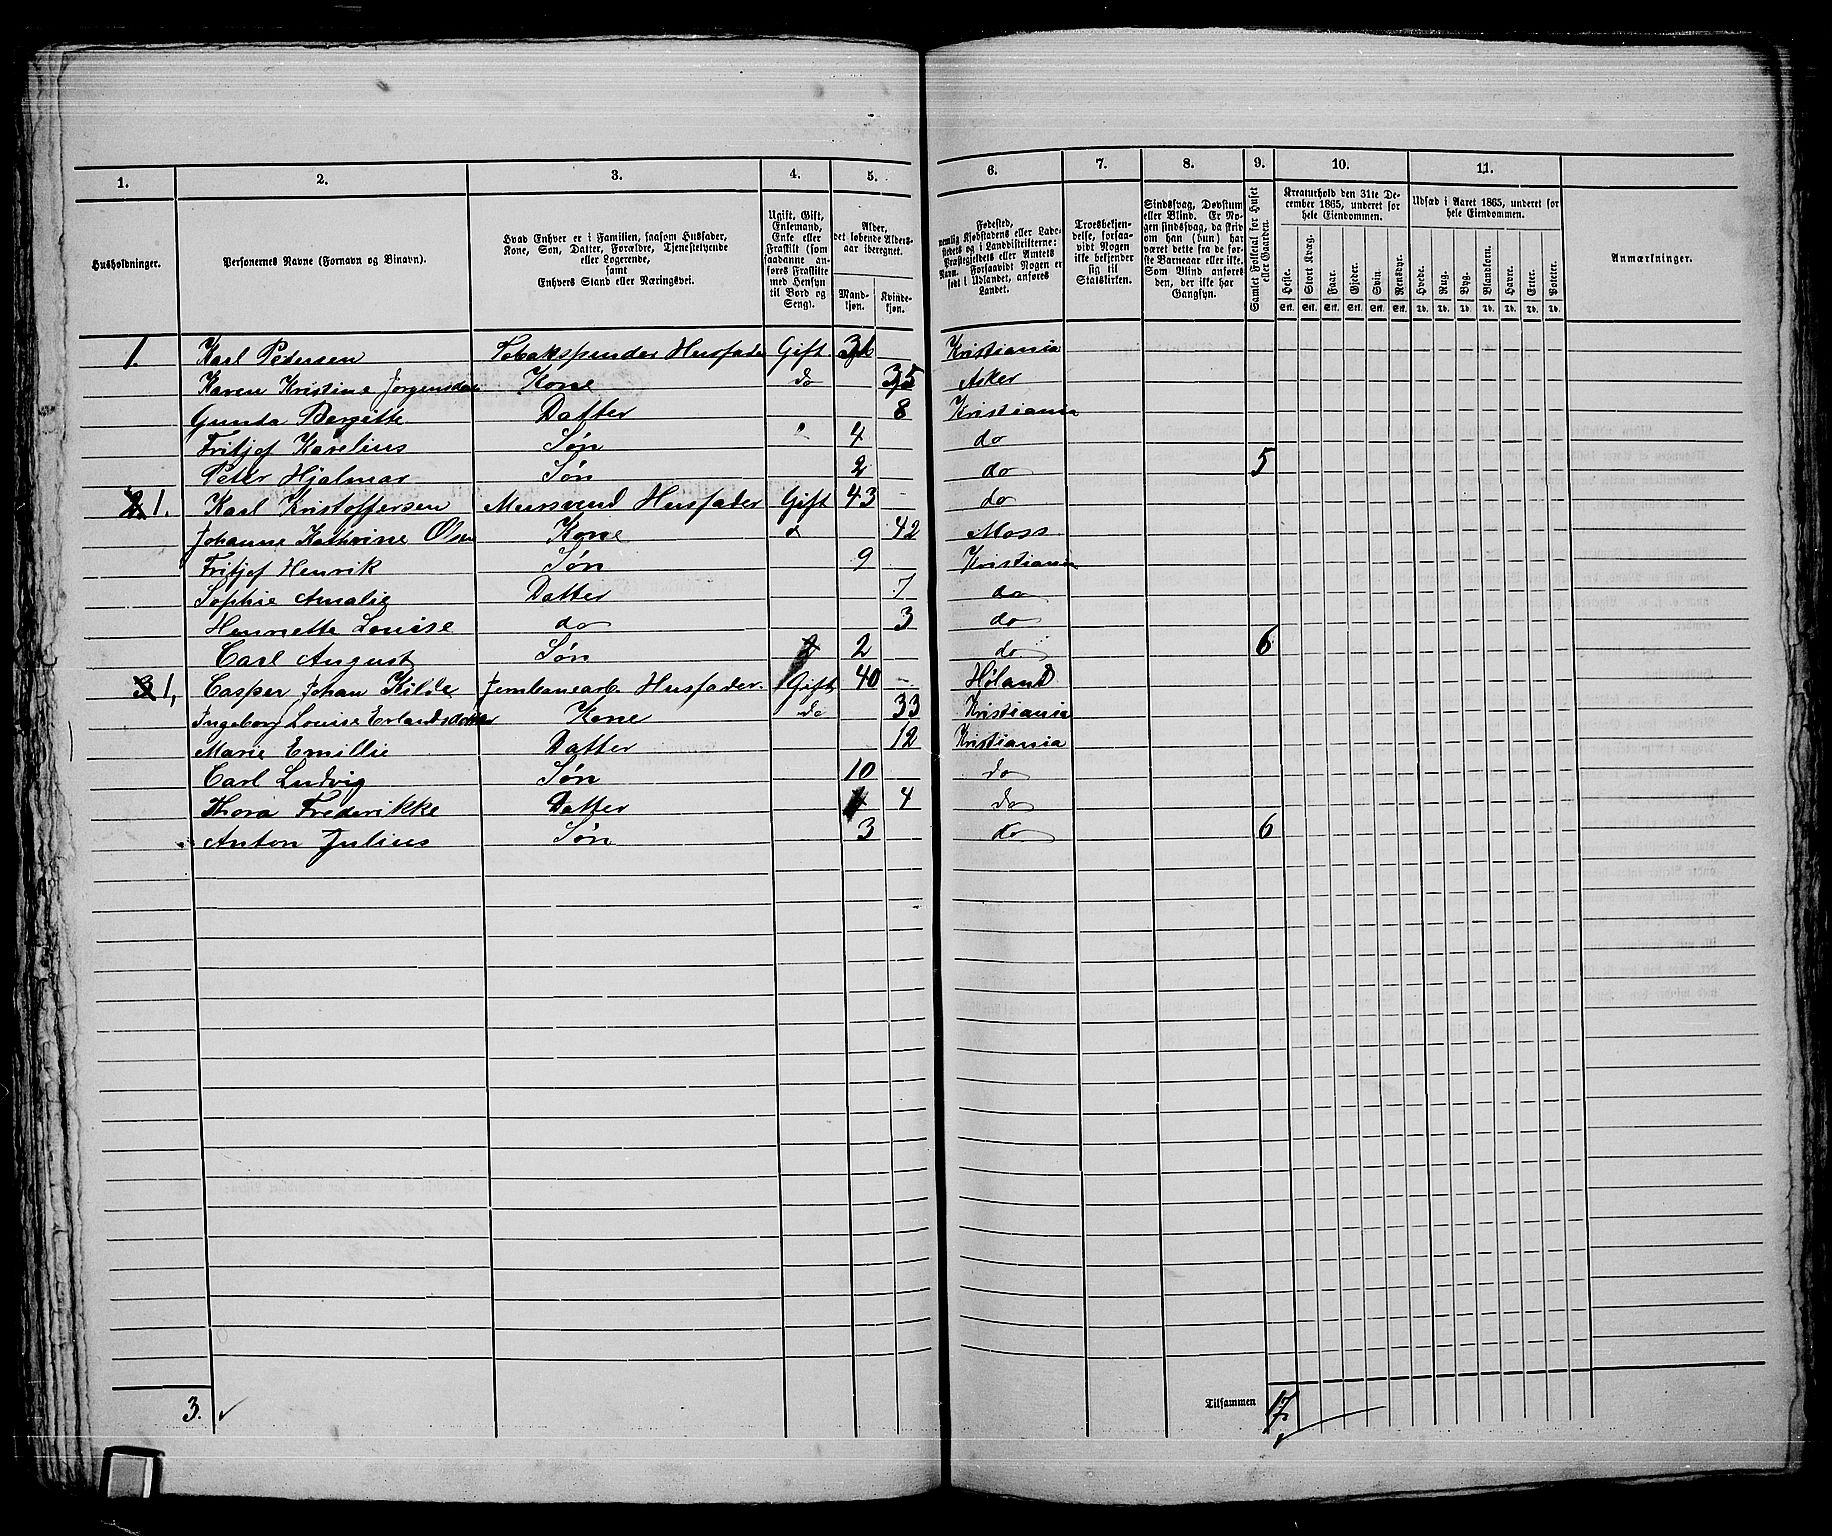 1. 2. 3. 4. 5. 6. 7. 8. 9. 10. 11.
Husholdninger.
Personernes Navne (Fornavn og Binavn).
Hvad Enhver er i Familien, saasom Husfader,
Kone, Søn, Datter, Forældre, Tjenestetyende
eller Logerende,
samt
Enhvers Stand eller Næringsvei.
Ugift, Gift,
Enkemand,
Enke eller
Fraskilt (som
saadanne an-
føres Fraskilte
med Hensyn
til Bord og
Seng).
Alder,
det løbende Alders-
aar iberegnet.
Mand-
kjøn.
Kvinde-
kjøn.
Fødested,
nemlig Kjøbstadens eller Lade-
stedets og i Landdistrikterne:
Præstegjeldets eller Amtets
Navn. Forsaavidt Nogen er
født i Udlandet, anføres
Landet.
Troesbekjen-
delse, forsaa-
vidt Nogen
ikke bekjender
sig til
Statskirken.
Sindssvag, Døvstum
eller Blind. Er No-
gen sindssvag, da skriv
om han (hun) har
været dette fra de før-
ste Barneaar eller ikke.
Som Blind anføres
den, der ikke har
Gangsyn.
Samlet Folketal for Huset
eller Gaarden.
Kreaturhold den 31te De-
cember 1865, underet for
hele Eiendommen.
Heste. Stort Kvæg. Faar. Gjeder. Svin. Rensdyr.
Stk. Stk. Stk. Stk. Stk. Stk.
Udsæd i Aaret 1865, underet for
hele Eiendommen.
Hvede. Rug. Byg. Blandkorn. Havre. Erter. Poteter.
Td. Td. Td. Td. Td. Td. Td.
Anmærkninger.
1. Karl Pedersen Tobakspinder Husfader Gift 36 Kristiania
Karen Kristine Jørgensdatter Kone do 35 Asker
Gunda Bergitte Datter 8 Kristiania
Fritjof Karelius Søn 4 do
Peter Hjalmar Søn 2 do 5
2. 1. Karl Kristoffersen Mursvend Husfader Gift 43 do
Johanne Kathrine Olsen Kone d 42 Moss
Fritjof Henrik Søn 9 Kristiania
Sophie Amalie Datter 7 do
Henriette Louise do 3 do
Carl August Søn 2 do 6
3. 1, Casper Johan Kilde Jernbanearb. Husfader. Gift 40 Høland
Ingeborg Louise Erlandsdatter Kone do 33 Kristiania
Marie Emillie Datter 12 Kristiania
Carl Ludvig Søn 10 do
Thora Frederikke Datter 4 do
Anton Julius Søn 3 do 6
3. Tilsammen 17